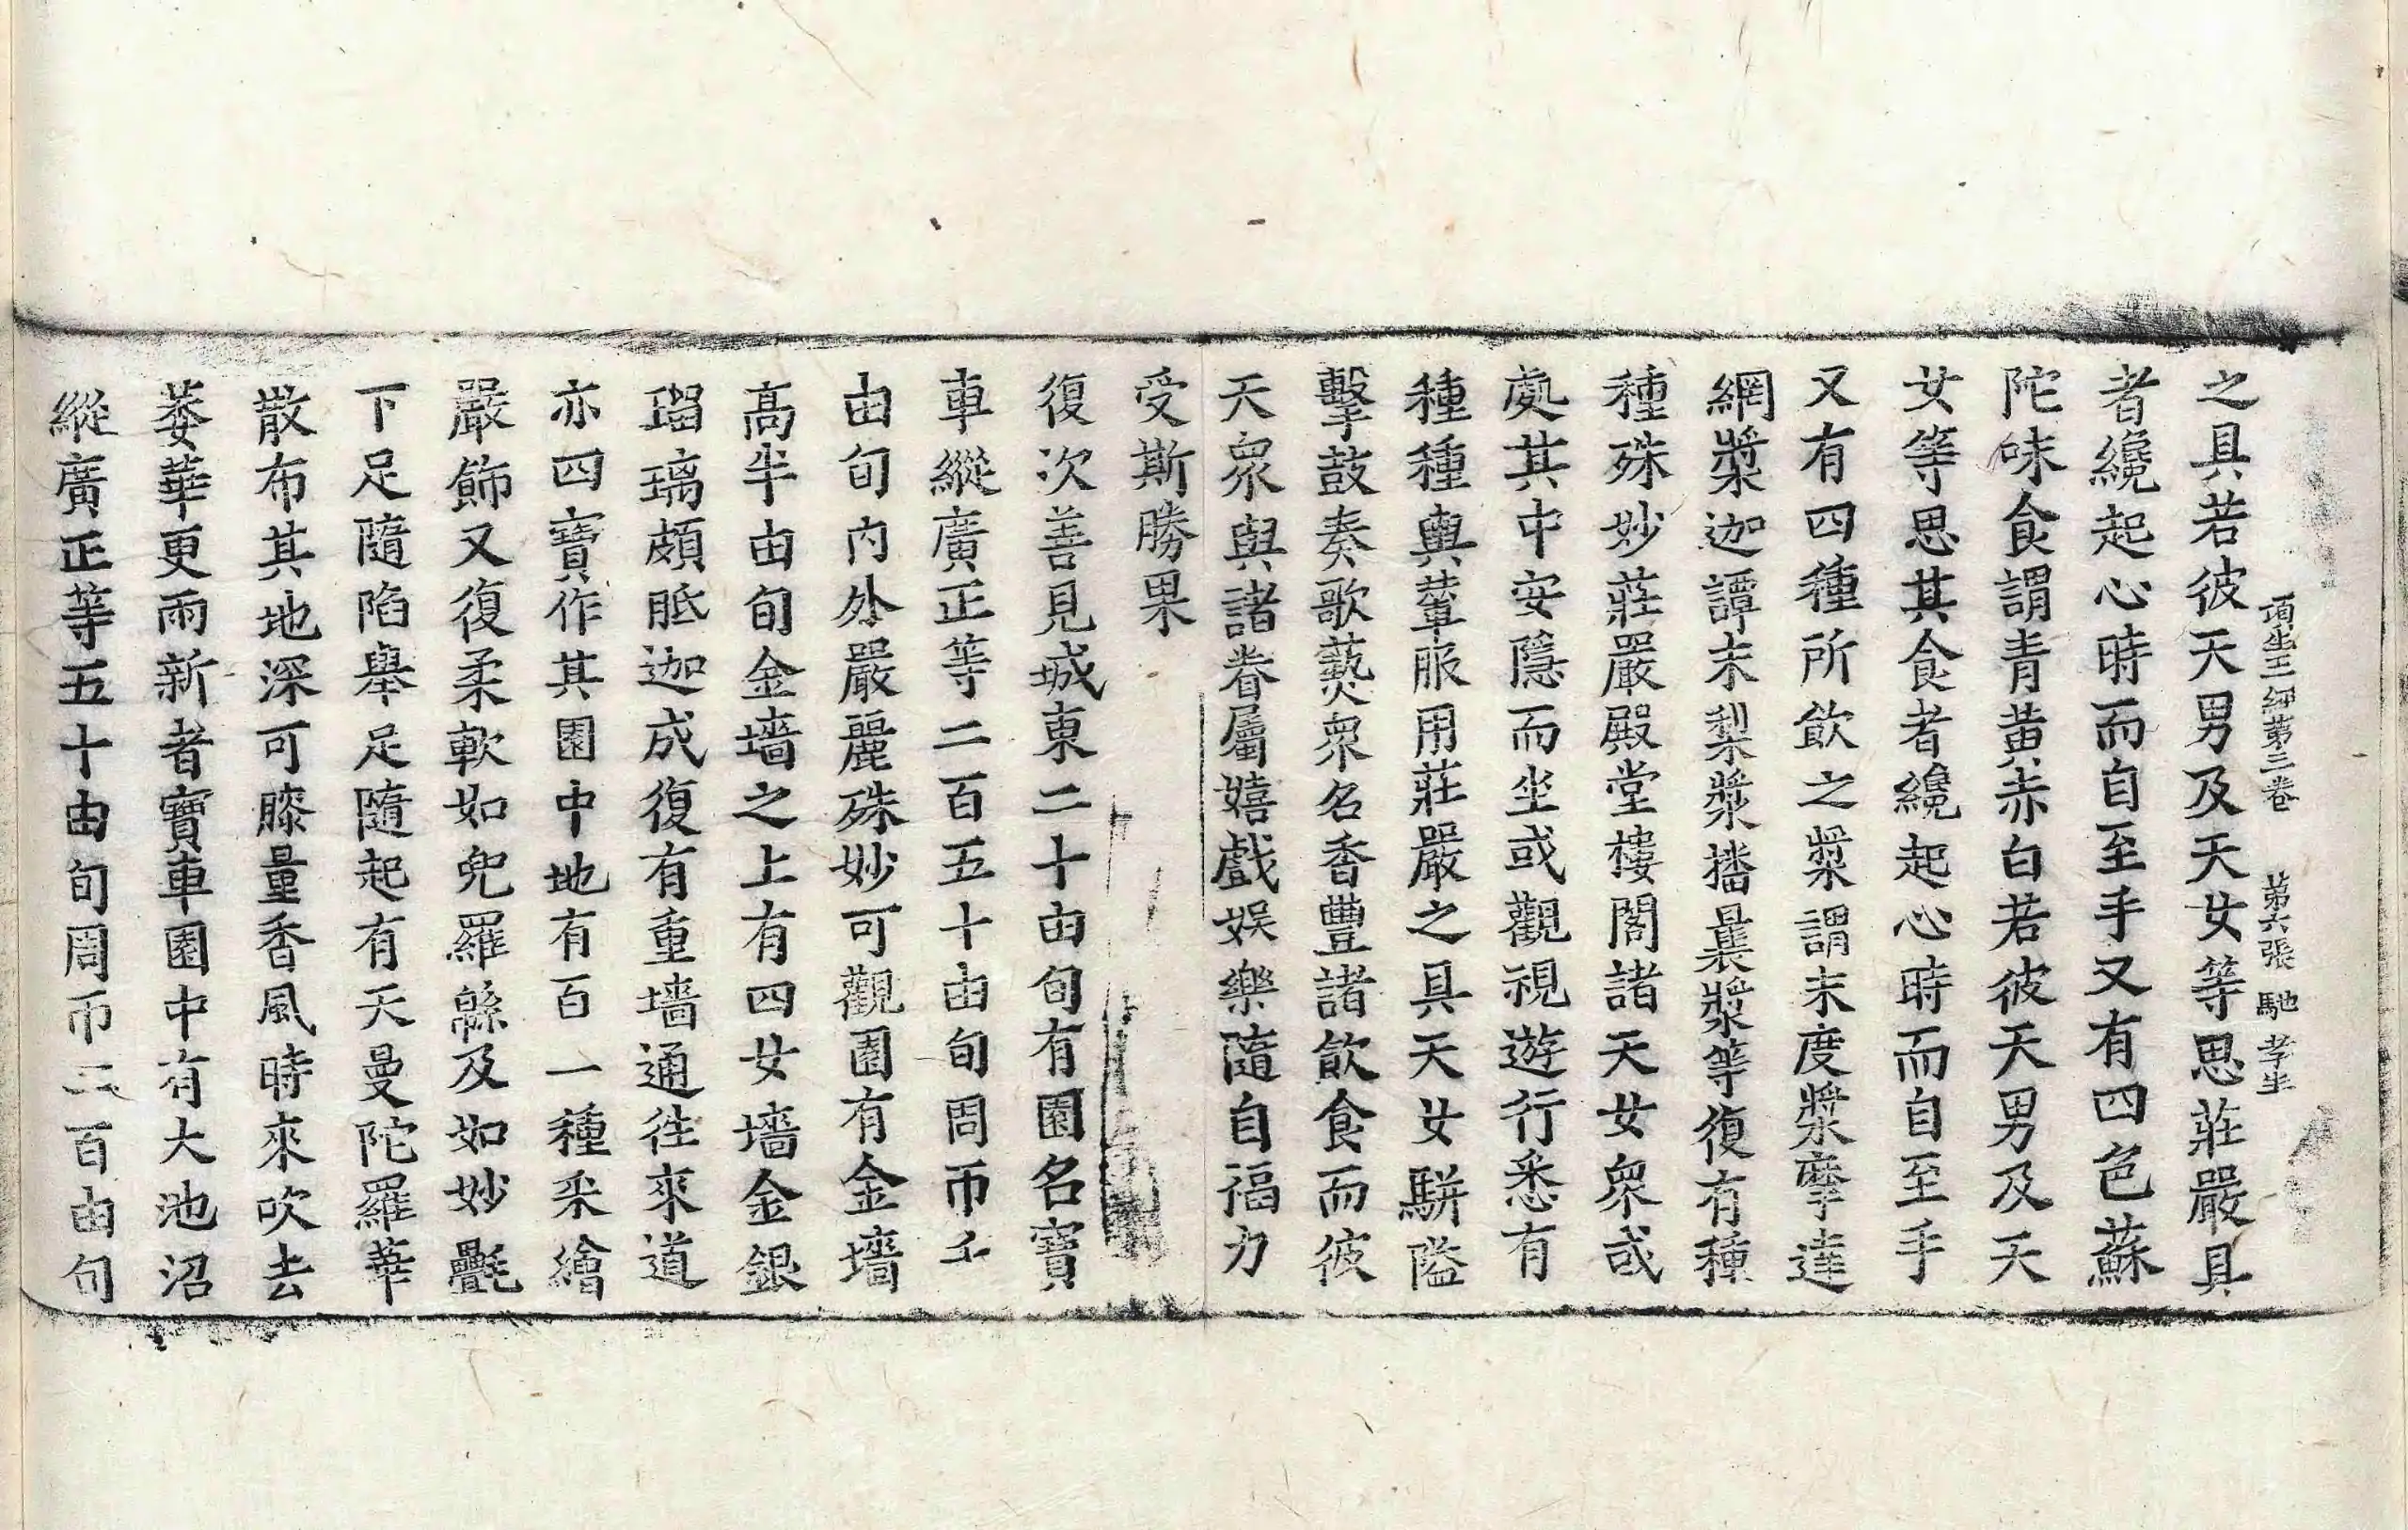 頂生王經第三卷 第六張 馳 孝生
之具若彼天男及天女等思莊嚴具
者纔起心時而自至手又有四色蘇
陀味食謂青黃赤白若彼天男及天
女等思其食者纔起心時而自至手
又有四種所飲之漿謂末度漿摩達
網漿迦譚末梨漿播曩漿等復有種
種殊妙莊嚴殿堂樓閣諸天女眾或
處其中安隱而坐或觀視遊行悉有
種種輿輦服用莊嚴之具天女駢隘
擊鼓奏歌爇眾名香豐諸飲食而彼
天眾與諸眷屬嬉戲娛樂隨自福力
受斯勝果
復次善見城東二十由旬有園名寶
車縱廣正等二百五十由旬周帀千
由旬內外嚴麗殊妙可觀園有金墻
高半由旬金墻之上有四女墻金銀
瑠璃頗胝迦成復有重墻通徃來道
亦四寶作其園中地有百一種采繪
嚴飾又復柔軟如兜羅緜及如妙㲲
下足隨陷舉足隨起有天曼陀羅華
散布其地深可膝量香風時來吹去
萎華更雨新者寶車園中有大池沼
縱廣正等五十由旬周帀二百由旬